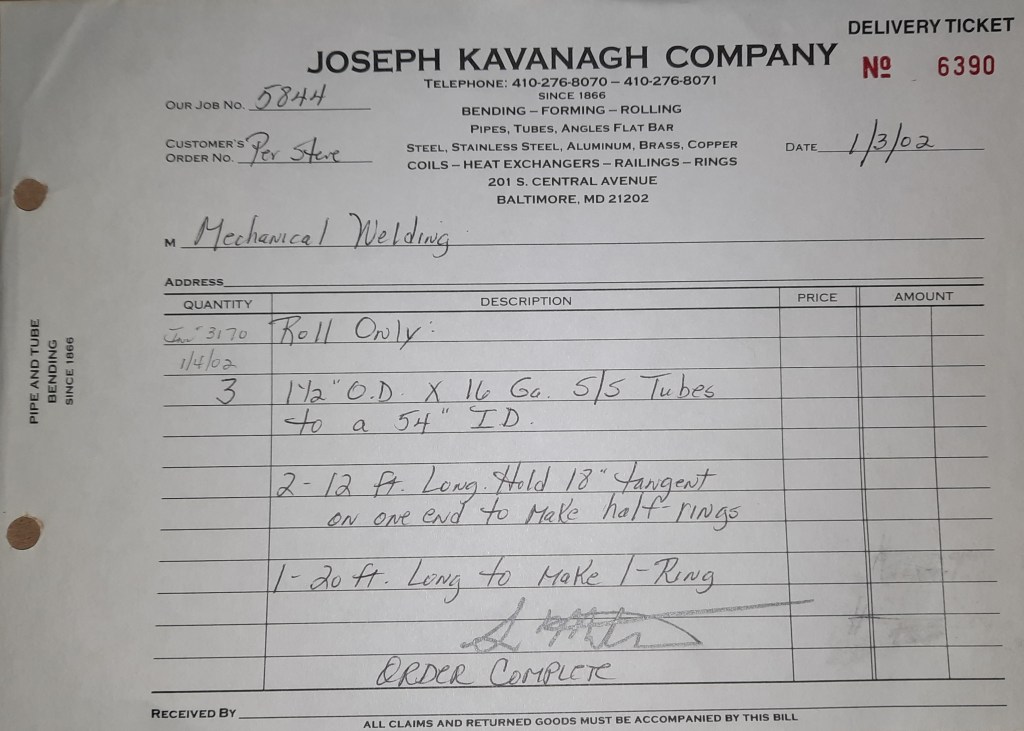 DELIVERY TICKET
JOSEPH KAVANAGH COMPANY
Nº 6390
TELEPHONE: 410-276-8070 – 410-276-8071
SINCE 1866
OUR JOB NO. 5844
BENDING – FORMING – ROLLING
PIPES, TUBES, ANGLES FLAT BAR
CUSTOMER'S ORDER NO. Per Steve
STEEL, STAINLESS STEEL, ALUMINUM, BRASS, COPPER
DATE 1/3/02
COILS – HEAT EXCHANGERS – RAILINGS – RINGS
201 S. CENTRAL AVENUE
BALTIMORE, MD 21202
M Mechanical Welding
ADDRESS
QUANTITY DESCRIPTION PRICE AMOUNT
3170 Roll Only:
1/4/02
3 1 1/2" O.D. X 16 Ga. S/S Tubes
to a 54" I.D.
2-12 ft. Long. Hold 18" tangent
on one end to Make half-rings
1-20 ft. Long to Make 1-Ring
ORDER COMPLETE
RECEIVED BY
ALL CLAIMS AND RETURNED GOODS MUST BE ACCOMPANIED BY THIS BILL
PIPE AND TUBE
BENDING
SINCE 1866